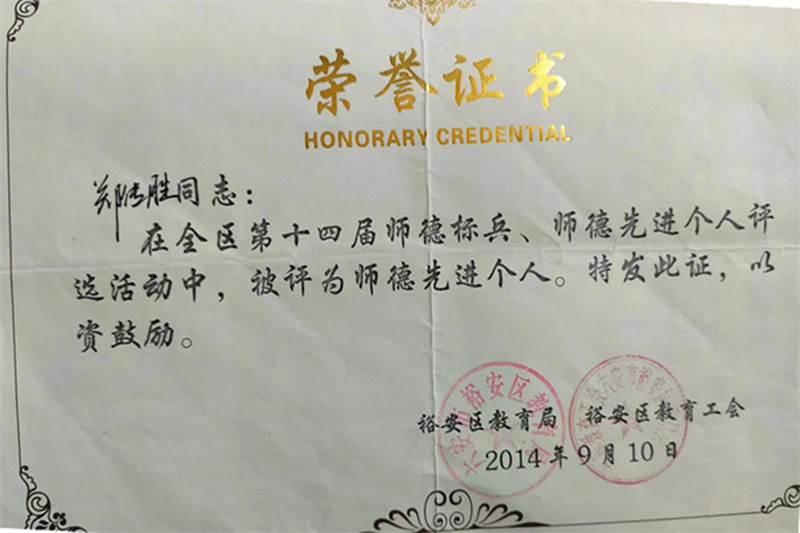 荣誉证书
HONORARY CREDENTIAL
郑传胜同志：
在全区第十四届师德标兵、师德先进个人评
选活动中，被评为师德先进个人。特发此证，以
资鼓励。
裕安区教育局 裕安区教育工会
2014年9月10日
六安市裕安区教育局